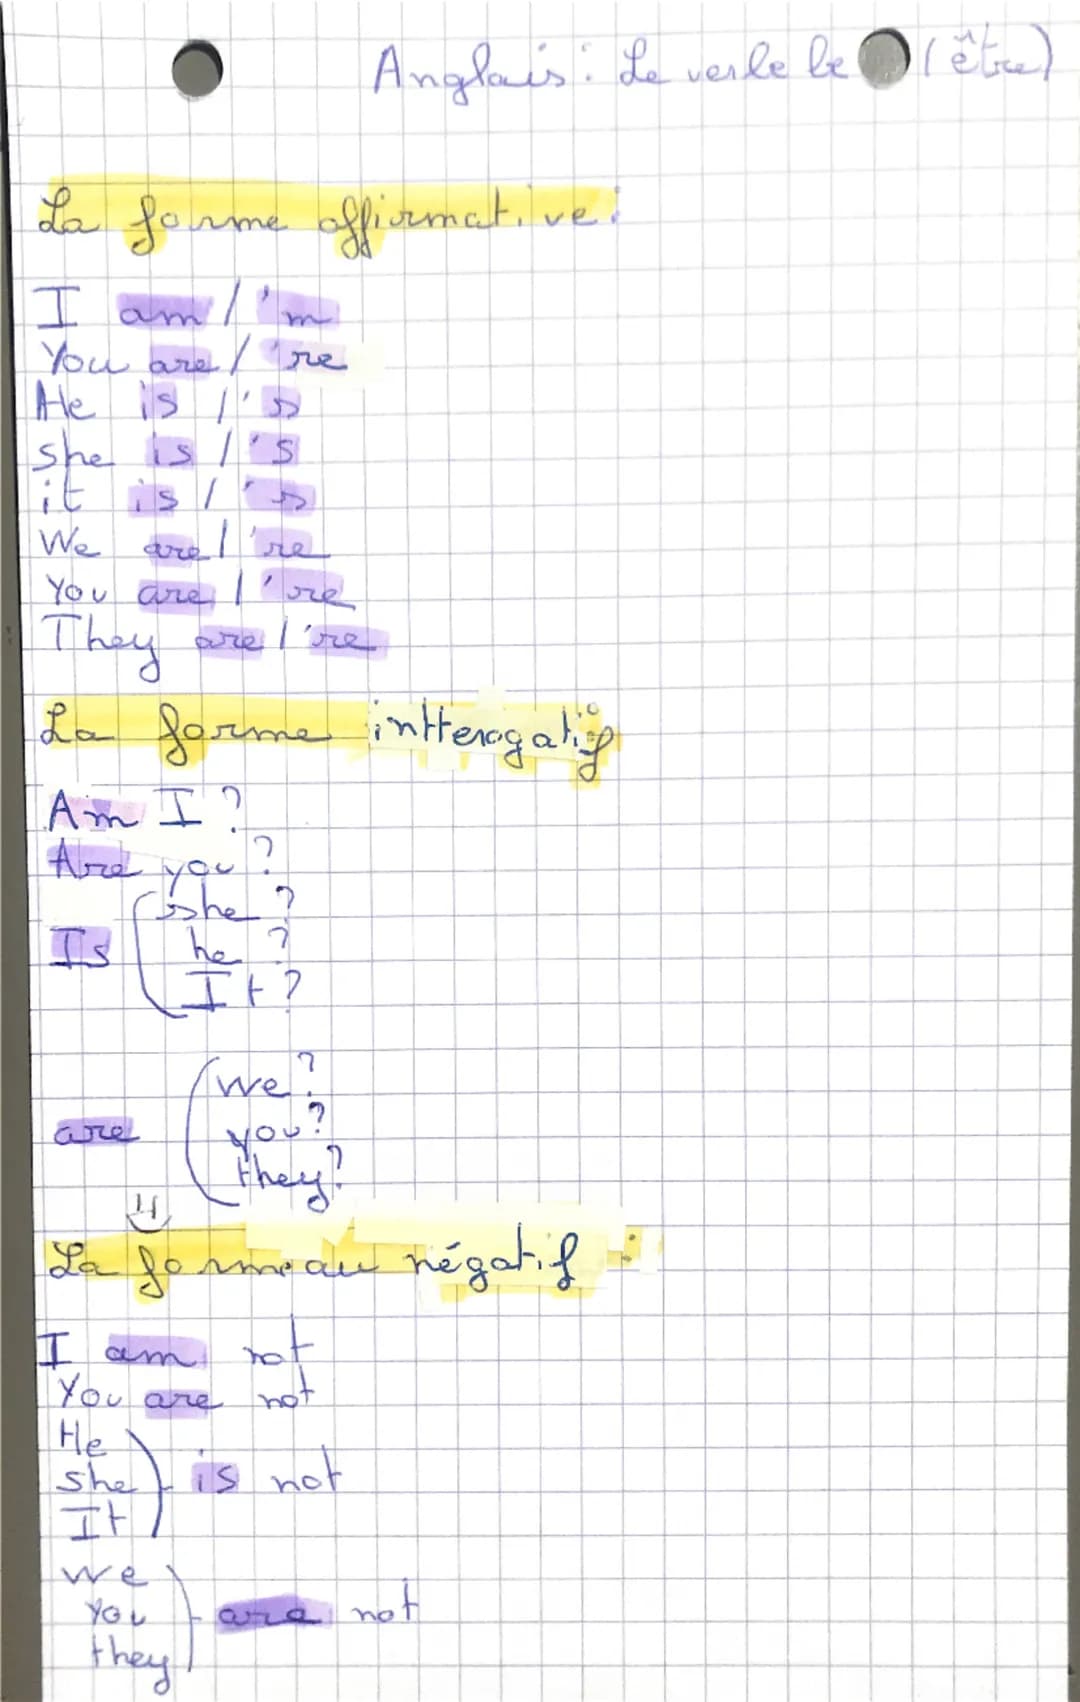 Anglais : Le verbe be (être)
La forme affirmative :
I am / 'm
You are / 're
He is / 's
she is / 's
it is / 's
We are / 're
You are / 're
They are / 're
La forme intterogatif :
Am I ?
Are you ?
she ?
Is he ?
It ?
we ?
are you ?
they ?
La forme au négatif :
I am not
You are not
He
she is not
It
we
You are not
they